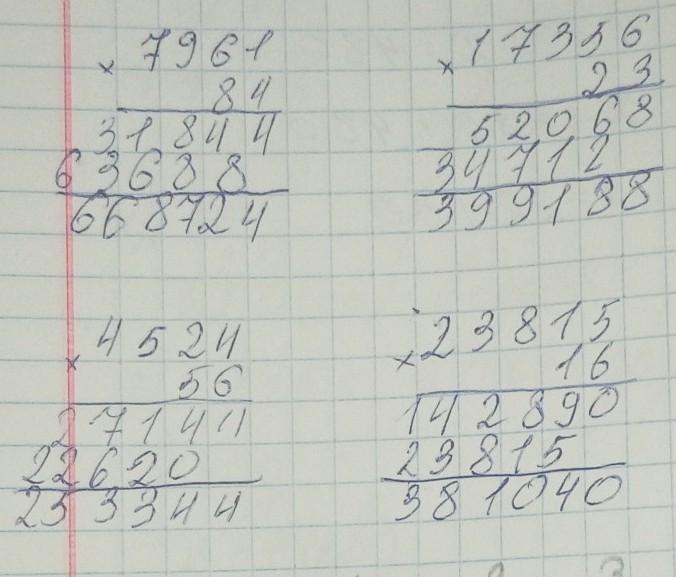 × 7961
84
31844
63688
668724
× 17356
23
52068
34712
399188
× 4524
56
27144
22620
253344
× 23815
16
142890
23815
381040